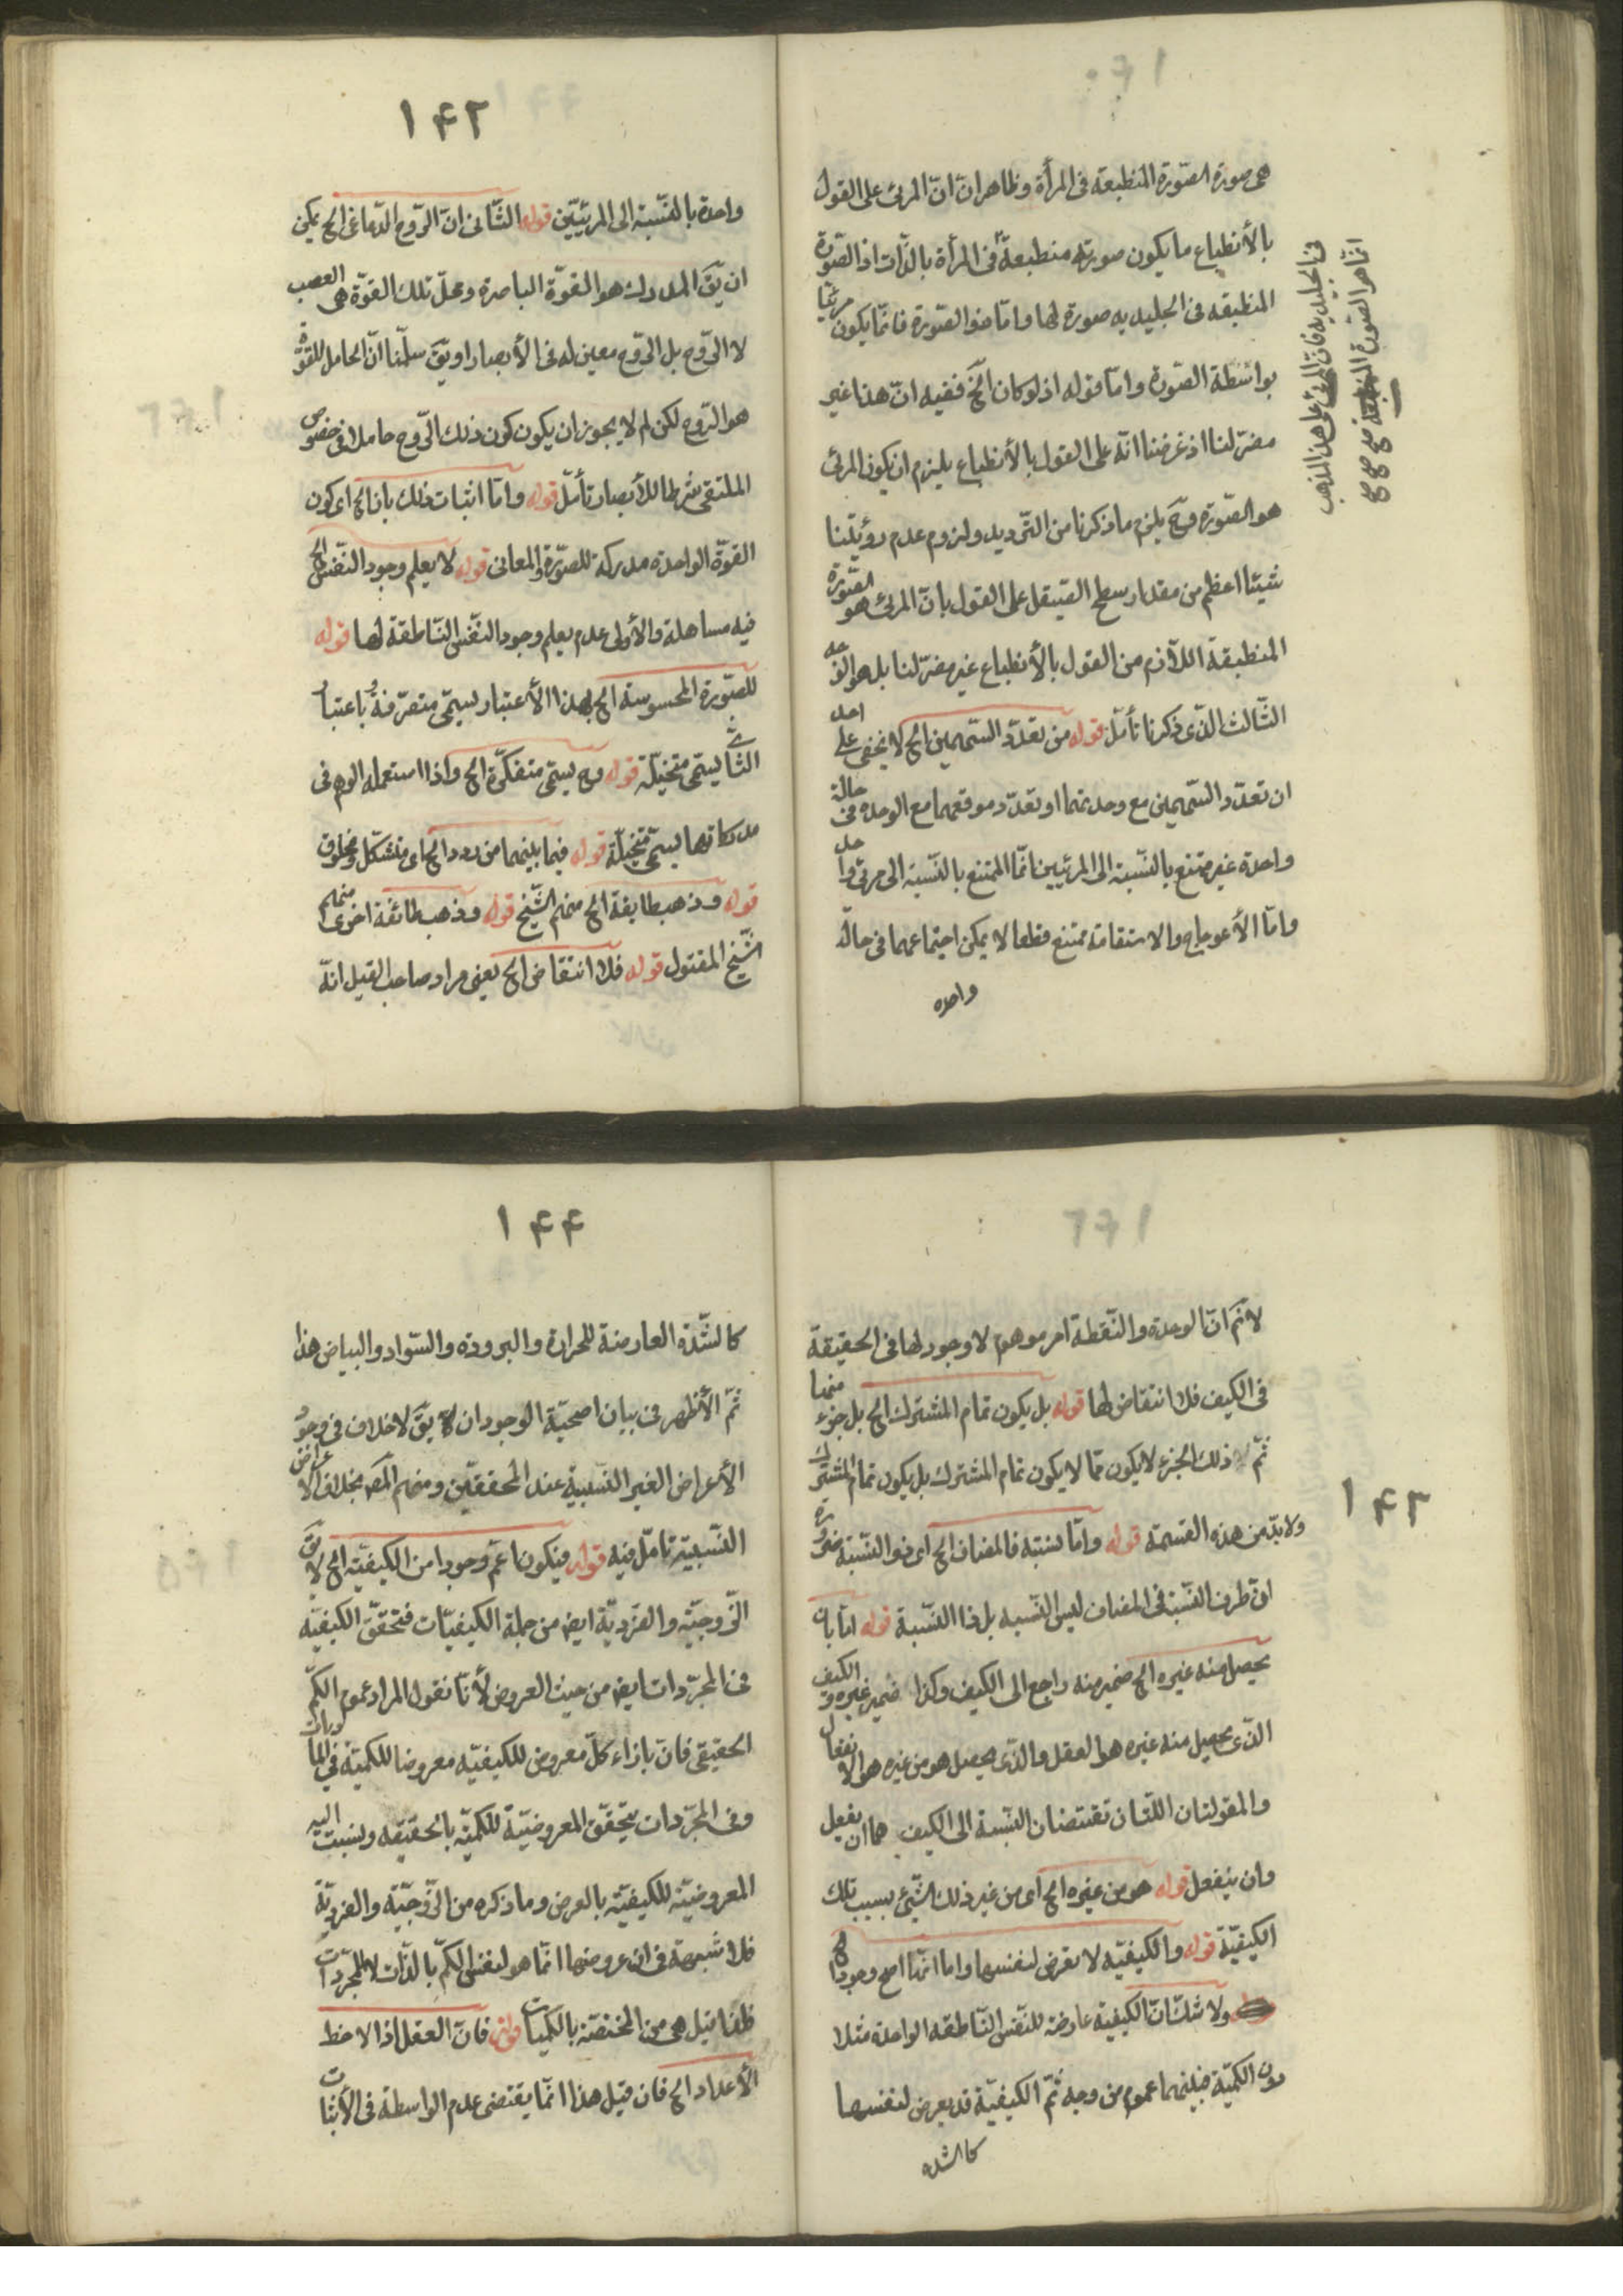 هى صورة الصّورة المنطبعة فى المرأة وظاهر انّ انّ المرئى على القول
بالأنطباع ما يكون صورته منطبعة فى المرأة بالذّات اذ الصّورة
المنطبقه فى الجليديه صورة لها وامّا ذو الصّورة فانّما يكون مرئيّا
بواسطة الصّورة وامّا قوله اذ لو كان الخ ففيه انّ هذا غير
مضرّ لنا اذ غرضنا انّه على القول بالأنطباع يلزم ان يكون المرئى
هو الصّورة وح يلزم ما ذكرنا من التّرديد ولزوم عدم رؤيتنا
شيئا اعظم من مقدار سطح الصّيقل على القول بانّ المرئى هو الصّورة
المنطبقة اللّازم من القول بالأنطباع غير مضرّ لنا بل هو الوجه
الثّالث الّذى ذكرنا تأمّل قوله من تعدّد السّهمين الخ لا يخفى على احد
ان تعدّد السّهمين مع وحدتهما او تعدّد موقعهما مع الوحدة فى حالة
واحدة غير ممتنع بالنّسبة الى المرئيين انّما الممتنع بالنّسبة الى مرئى واحد
وامّا الأعوجاج والاستقامة ممتنع قطعا لا يمكن اجتماعهما فى حالة
واحده
فى الجليديه فانّ المرئى على هذا المذهب
انّما هو الصّورة المنطبعة صح صح صح
١٤٢
واحدة بالنّسبة الى المرئيّين قوله الثّانى انّ الرّوح الدّماغى الخ يمكن
ان يقّ المدرك هو القوّة الباصرة ومحلّ تلك القوّة هى العصب
لا الرّوح بل الرّوح معين له فى الأبصار او يقّ سلّمنا انّ الحامل للقوّة
هو الرّوح لكن لم لا يجوز ان يكون كون ذلك الرّوح حاملا فى خصوص
الملتقى شرطا للأبصار تأمّل قوله وامّا اثبات ذلك بان الخ اى كون
القوّة الواحدة مدركة للصّورة والمعانى قوله لا يعلم وجود النّفس الخ
فيه مساهلة والأولى عدم يعلم وجود النّفس النّاطقة لها قوله
للصّورة المحسوسة الخ بهذا الأعتبار يسمّى متصرّفة وباعتبار
الثّانى يسمّى متخيّلة قوله وح يسمّى متفكّرة الخ واذا استعمله الوهم فى
مدركاتها يسمّى متخيّلة قوله فيما بينهما من دود الخ اى متشكّل ومخلوق
قوله وذهب طايفة الخ منهم الشّيخ قوله وذهب طائفة اخرى منهم
الشّيخ المقتول قوله فلا انتقاض الخ يعنى مراد صاحب القيل انّه
١٤٣
لا نمّ انّ الوحدة والنّقطة امر موهوم لا وجود لها فى الحقيقة
فى الكيف فلا انتقاض لها قوله بل يكون تمام المشترك الخ بل جزء منها
ثمّ ذلك الجزء لا يكون ممّا لا يكون تمام المشترك بل يكون تمام المشترك
ولا بدّ من هذه القسمة قوله وامّا نسبته فالمضاف الخ اى ذو النّسبة ضرورة
انّ طرف النّسبة فى المضاف ليس النّسبة بل ذا النّسبة قوله امّا بان
يحصل منه غيره الخ ضمير منه راجع الى الكيف وكذا ضمير غيره والكيف
الّذى يحصل منه غيره هو الفعل والّذى يحصل هو من غيره هو الانفعال
والمقولتان اللّتان تقتضيان النّسبة الى الكيف هما ان يفعل
وان ينفعل قوله هو من غيره الخ اى من غير ذلك الشّىء بسبب تلك
الكيفيّة قوله والكيفيّة لا تعرض لنفسها واما انّها اصح وجودا الخ
ولا شكّ انّ الكيفيّة عارضة للنّفس النّاطقه الواحدة مثلا
دون الكميّة فبينهما عموم من وجه ثمّ الكيفيّة قد يعرض لنفسها
كالشّدة
١٤٤
كالشّدّة العارضة للحرارة والبرودة والسّواد والبياض هذا
ثمّ الأظهر فى بيان اصحيّة الوجود ان يقّ لا خلاف فى وجود
الأعراض الغير النّسبية عند المحققين ومنهم المصّ بخلاف الأعراض
النّسبيّة تامّل فيه قوله فيكون اعمّ وجودا من الكيفيّة الخ لا يقّ
الزّوجيّة والفرديّة ايض من جملة الكيفيّات فتحقّق الكيفيّة
فى المجرّدات ايض من حيث العروض لأنّا نقول المراد عموم الكمّ
الحقيقى فانّ بازاء كلّ معروض للكيفيّه معروضا للكميّة فى الماديات
وفى المجرّدات يتحقّق المعروضيّة للكميّة بالحقيقه وينسبت اليه
المعروضيّة للكيفيّة بالعرض وما ذكره من الزّوجيّة والفرديّة
فلا شبهة فى انّ عروضها انّما هو لنفس الكمّ بالذّات لا للمجرّدات
فلذا قيل هى من المختصّة بالكميّات قوله فانّ العقل اذا لاحظ
الأعداد الخ فان قيل هذا انّما يقتضى عدم الواسطة فى الأثبات